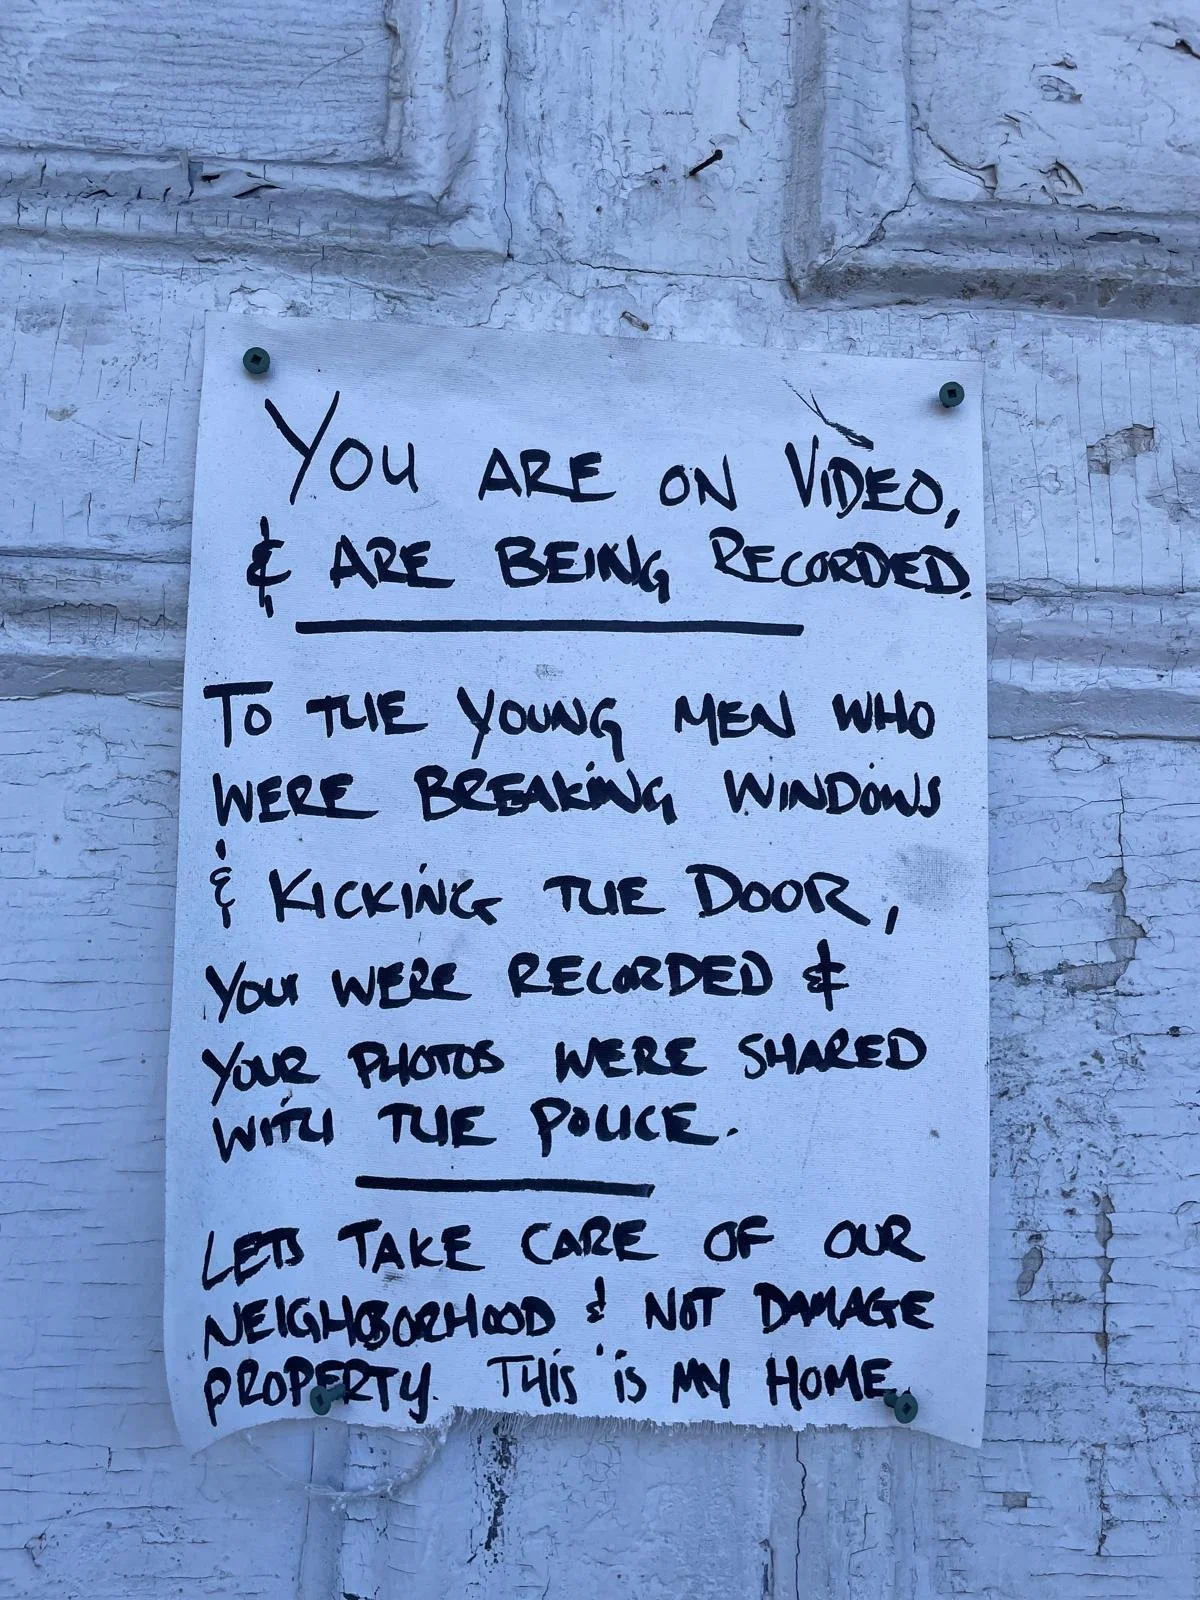 YOU ARE ON VIDEO,
& ARE BEING RECORDED.
TO THE YOUNG MEN WHO
WERE BREAKING WINDOWS
& KICKING THE DOOR,
YOU WERE RECORDED &
YOUR PHOTOS WERE SHARED
WITH THE POLICE.
LETS TAKE CARE OF OUR
NEIGHBORHOOD & NOT DAMAGE
PROPERTY. THIS IS MY HOME.